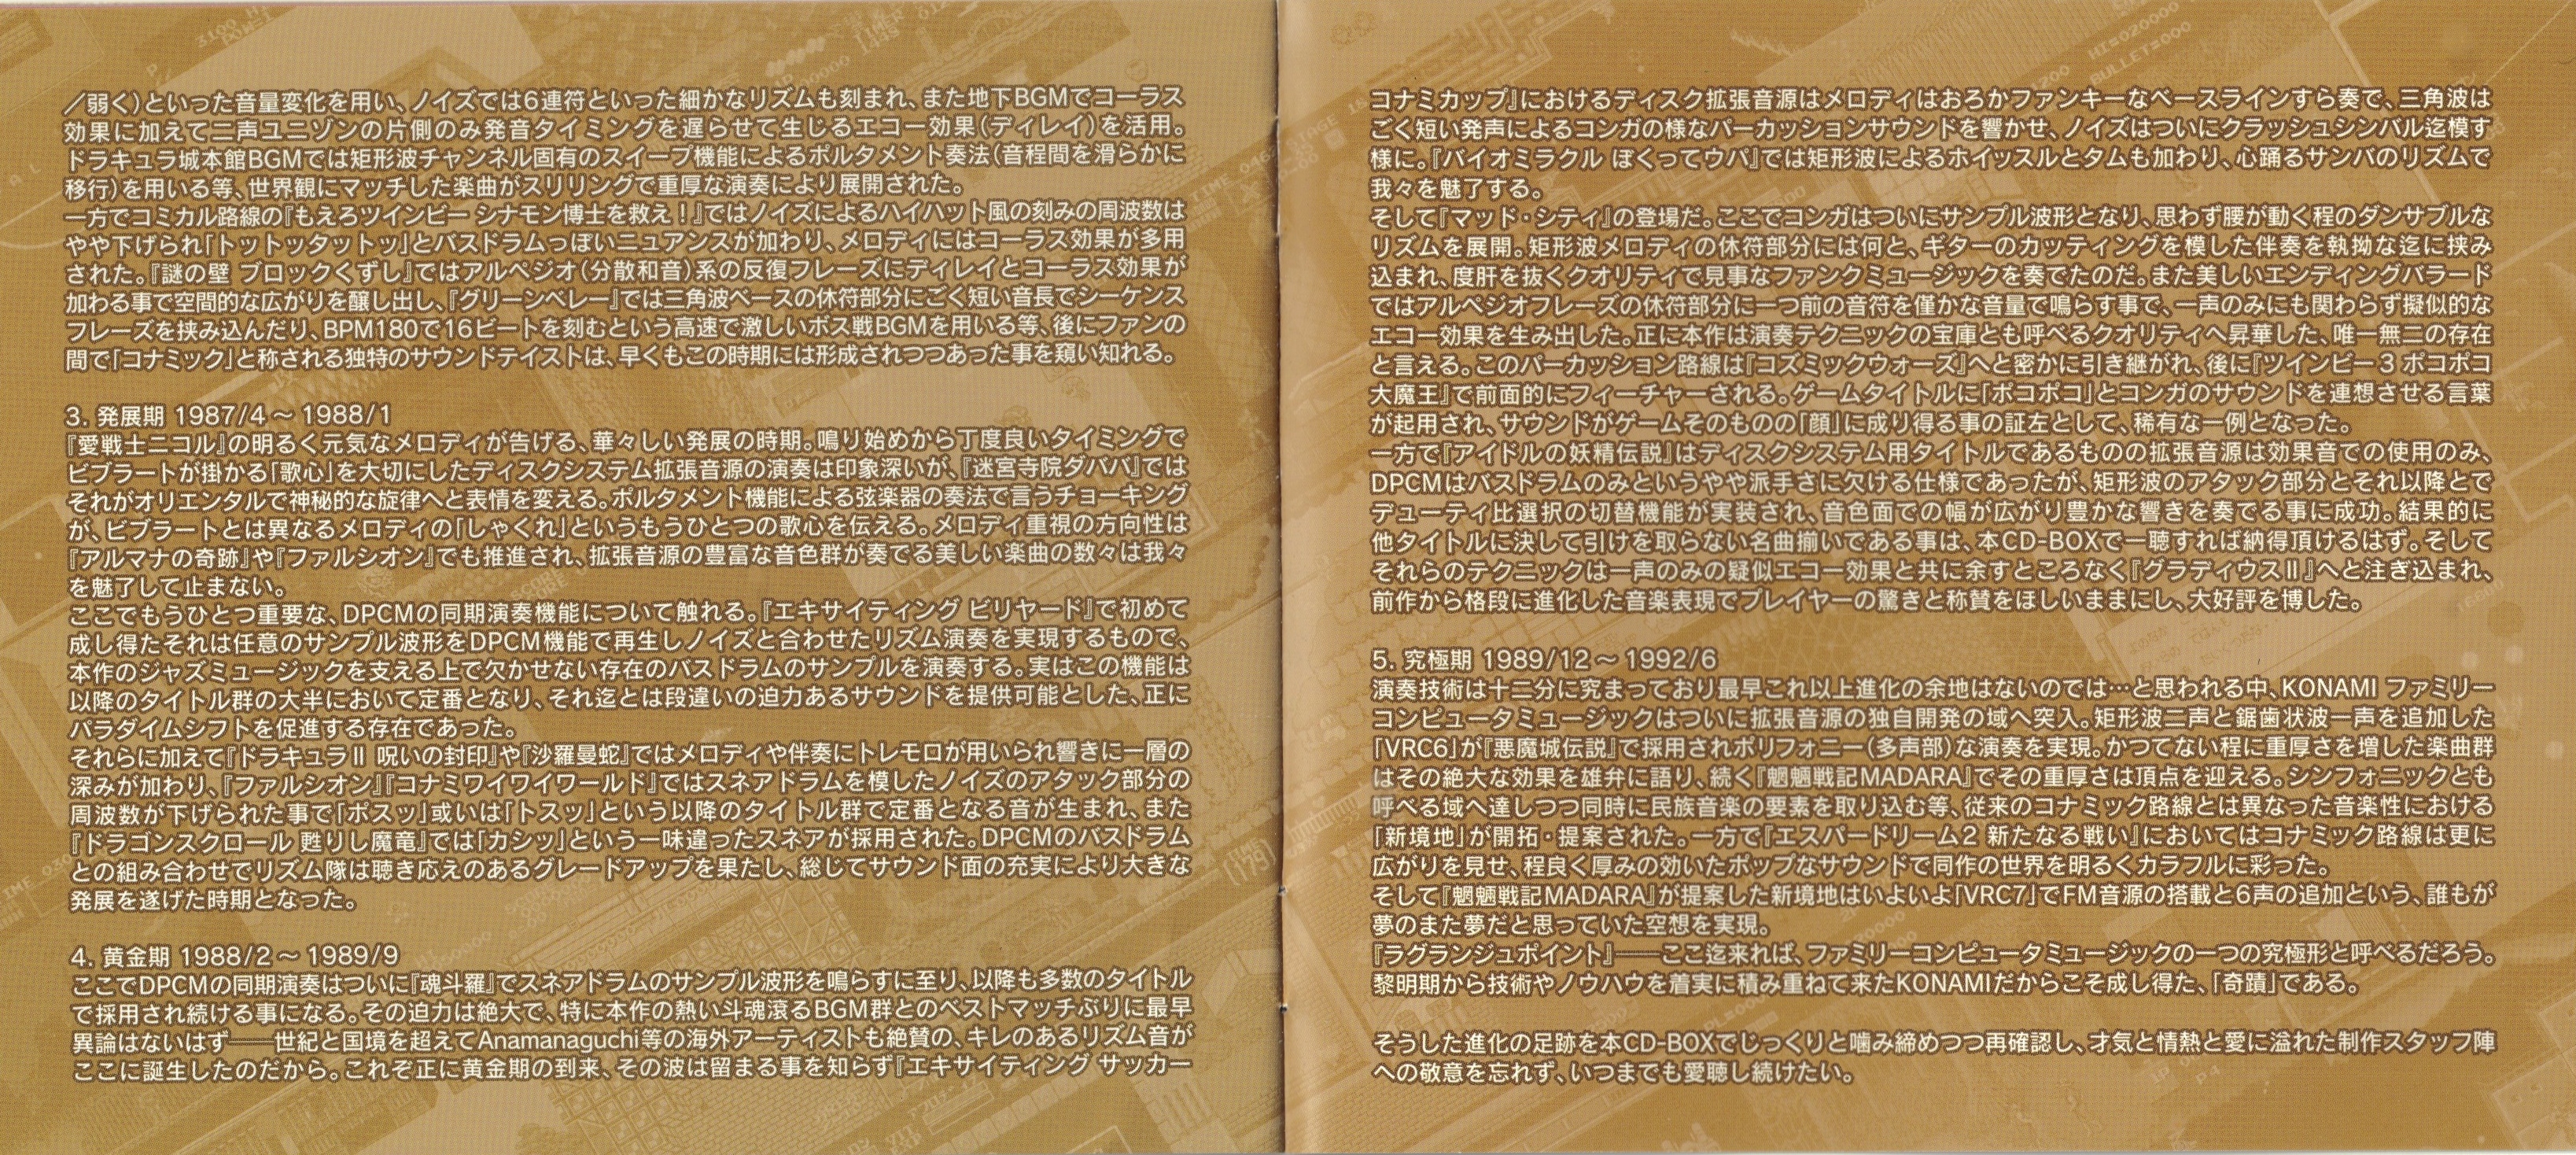 ／弱く）といった音量変化を用い、ノイズでは6連符といった細かなリズムも刻まれ、また地下BGMでコーラス
効果に加えて二声ユニゾンの片側のみ発音タイミングを遅らせて生じるエコー効果（ディレイ）を活用。
ドラキュラ城本館BGMでは矩形波チャンネル固有のスイープ機能によるポルタメント奏法（音程間を滑らかに
移行）を用いる等、世界観にマッチした楽曲がスリリングで重厚な演奏により展開された。
一方でコミカル路線の『もえろツインビー シナモン博士を救え！』ではノイズによるハイハット風の刻みの周波数は
やや下げられ「トットッタットッ」とバスドラムっぽいニュアンスが加わり、メロディにはコーラス効果が多用
された。『謎の壁 ブロックくずし』ではアルペジオ（分散和音）系の反復フレーズにディレイとコーラス効果が
加わる事で空間的な広がりを醸し出し、『グリーンベレー』では三角波ベースの休符部分にごく短い音長でシーケンス
フレーズを挟み込んだり、BPM180で16ビートを刻むという高速で激しいボス戦BGMを用いる等、後にファンの
間で「コナミック」と称される独特のサウンドテイストは、早くもこの時期には形成されつつあった事を窺い知れる。
3. 発展期 1987/4 ～ 1988/1
『愛戦士ニコル』の明るく元気なメロディが告げる、華々しい発展の時期。鳴り始めから丁度良いタイミングで
ビブラートが掛かる「歌心」を大切にしたディスクシステム拡張音源の演奏は印象深いが、『迷宮寺院ダババ』では
それがオリエンタルで神秘的な旋律へと表情を変える。ポルタメント機能による弦楽器の奏法で言うチョーキング
が、ビブラートとは異なるメロディの「しゃくれ」というもうひとつの歌心を伝える。メロディ重視の方向性は
『アルマナの奇跡』や『ファルシオン』でも推進され、拡張音源の豊富な音色群が奏でる美しい楽曲の数々は我々
を魅了して止まない。
ここでもうひとつ重要な、DPCMの同期演奏機能について触れる。『エキサイティング ビリヤード』で初めて
成し得たそれは任意のサンプル波形をDPCM機能で再生しノイズと合わせたリズム演奏を実現するもので、
本作のジャズミュージックを支える上で欠かせない存在のバスドラムのサンプルを演奏する。実はこの機能は
以降のタイトル群の大半において定番となり、それ迄とは段違いの迫力あるサウンドを提供可能とした、正に
パラダイムシフトを促進する存在であった。
それらに加えて『ドラキュラⅡ 呪いの封印』や『沙羅曼蛇』ではメロディや伴奏にトレモロが用いられ響きに一層の
深みが加わり、『ファルシオン』『コナミワイワイワールド』ではスネアドラムを模したノイズのアタック部分の
周波数が下げられた事で「ポスッ」或いは「トスッ」という以降のタイトル群で定番となる音が生まれ、また
『ドラゴンスクロール 甦りし魔竜』では「カシッ」という一味違ったスネアが採用された。DPCMのバスドラム
との組み合わせでリズム隊は聴き応えのあるグレードアップを果たし、総じてサウンド面の充実により大きな
発展を遂げた時期となった。
4. 黄金期 1988/2 ～ 1989/9
ここでDPCMの同期演奏はついに『魂斗羅』でスネアドラムのサンプル波形を鳴らすに至り、以降も多数のタイトル
で採用され続ける事になる。その迫力は絶大で、特に本作の熱い斗魂滾るBGM群とのベストマッチぶりに最早
異論はないはず――世紀と国境を超えてAnamanaguchi等の海外アーティストも絶賛の、キレのあるリズム音が
ここに誕生したのだから。これぞ正に黄金期の到来、その波は留まる事を知らず『エキサイティング サッカー
コナミカップ』におけるディスク拡張音源はメロディはおろかファンキーなベースラインすら奏で、三角波は
ごく短い発声によるコンガの様なパーカッションサウンドを響かせ、ノイズはついにクラッシュシンバル迄模す
様に。『バイオミラクル ぼくってウパ』では矩形波によるホイッスルとタムも加わり、心踊るサンバのリズムで
我々を魅了する。
そして『マッド・シティ』の登場だ。ここでコンガはついにサンプル波形となり、思わず腰が動く程のダンサブルな
リズムを展開。矩形波メロディの休符部分には何と、ギターのカッティングを模した伴奏を執拗な迄に挟み
込まれ、度肝を抜くクオリティで見事なファンクミュージックを奏でたのだ。また美しいエンディングバラード
ではアルペジオフレーズの休符部分に一つ前の音符を僅かな音量で鳴らす事で、一声のみにも関わらず擬似的な
エコー効果を生み出した。正に本作は演奏テクニックの宝庫とも呼べるクオリティへ昇華した、唯一無二の存在
と言える。このパーカッション路線は『コズミックウォーズ』へと密かに引き継がれ、後に『ツインビー3 ポコポコ
大魔王』で前面的にフィーチャーされる。ゲームタイトルに「ポコポコ」とコンガのサウンドを連想させる言葉
が起用され、サウンドがゲームそのものの「顔」に成り得る事の証左として、稀有な一例となった。
一方で『アイドルの妖精伝説』はディスクシステム用タイトルであるものの拡張音源は効果音での使用のみ、
DPCMはバスドラムのみというやや派手さに欠ける仕様であったが、矩形波のアタック部分とそれ以降とで
デューティ比選択の切替機能が実装され、音色面での幅が広がり豊かな響きを奏でる事に成功。結果的に
他タイトルに決して引けを取らない名曲揃いである事は、本CD-BOXで一聴すれば納得頂けるはず。そして
それらのテクニックは一声のみの疑似エコー効果と共に余すところなく『グラディウスⅡ』へと注ぎ込まれ、
前作から格段に進化した音楽表現でプレイヤーの驚きと称賛をほしいままにし、大好評を博した。
5. 究極期 1989/12 ～ 1992/6
演奏技術は十二分に究まっており最早これ以上進化の余地はないのでは…と思われる中、KONAMI ファミリー
コンピュータミュージックはついに拡張音源の独自開発の域へ突入。矩形波二声と鋸歯状波一声を追加した
「VRC6」が『悪魔城伝説』で採用されポリフォニー（多声部）な演奏を実現。かつてない程に重厚さを増した楽曲群
はその絶大な効果を雄弁に語り、続く『魍魎戦記MADARA』でその重厚さは頂点を迎える。シンフォニックとも
呼べる域へ達しつつ同時に民族音楽の要素を取り込む等、従来のコナミック路線とは異なった音楽性における
「新境地」が開拓・提案された。一方で『エスパードリーム2 新たなる戦い』においてはコナミック路線は更に
広がりを見せ、程良く厚みの効いたポップなサウンドで同作の世界を明るくカラフルに彩った。
そして『魍魎戦記MADARA』が提案した新境地はいよいよ「VRC7」でFM音源の搭載と6声の追加という、誰もが
夢のまた夢だと思っていた空想を実現。
『ラグランジュポイント』――ここ迄来れば、ファミリーコンピュータミュージックの一つの究極形と呼べるだろう。
黎明期から技術やノウハウを着実に積み重ねて来たKONAMIだからこそ成し得た、「奇蹟」である。
そうした進化の足跡を本CD-BOXでじっくりと噛み締めつつ再確認し、才気と情熱と愛に溢れた制作スタッフ陣
への敬意を忘れず、いつまでも愛聴し続けたい。